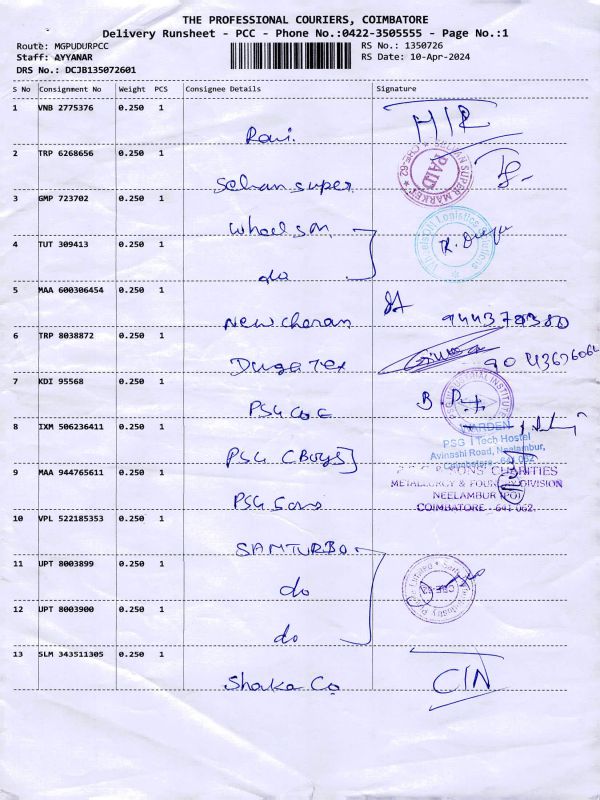 THE PROFESSIONAL COURIERS, COIMBATORE
Delivery Runsheet - PCC - Phone No.:0422-3505555 - Page No.:1
Route: MGPUDURPCC RS No.: 1350726
Staff: AYYANAR RS Date: 10-Apr-2024
DRS No.: DCJB135072601
S No Consignment No Weight PCS Consignee Details Signature
1 VNB 2775376 0.250 1
Ravi. HIR
2 TRP 6268656 0.250 1
Selvan super PAID
3 GMP 723702 0.250 1
Wheel sm
4 TUT 309413 0.250 1
do
5 MAA 600306454 0.250 1
New cheran
6 TRP 8038872 0.250 1
Duga Tex
7 KDI 95568 0.250 1
PSG COE PSG INDUSTRIAL INSTITUTE
8 IXM 506236411 0.250 1 WARDEN
PSG iTech Hostel
Avinashi Road, Neelambur,
Coimbatore - 641 062
PSG (Boys]
9 MAA 944765611 0.250 1 SONS' CHARITIES
METALLURGY & FOUNDRY DIVISION
PSG Sons NEELAMBUR (PO)
COIMBATORE - 641 062.
10 VPL 522185353 0.250 1
SAMTURBO
11 UPT 8003899 0.250 1
do
12 UPT 8003900 0.250 1
do
13 SLM 343511305 0.250 1
CTN